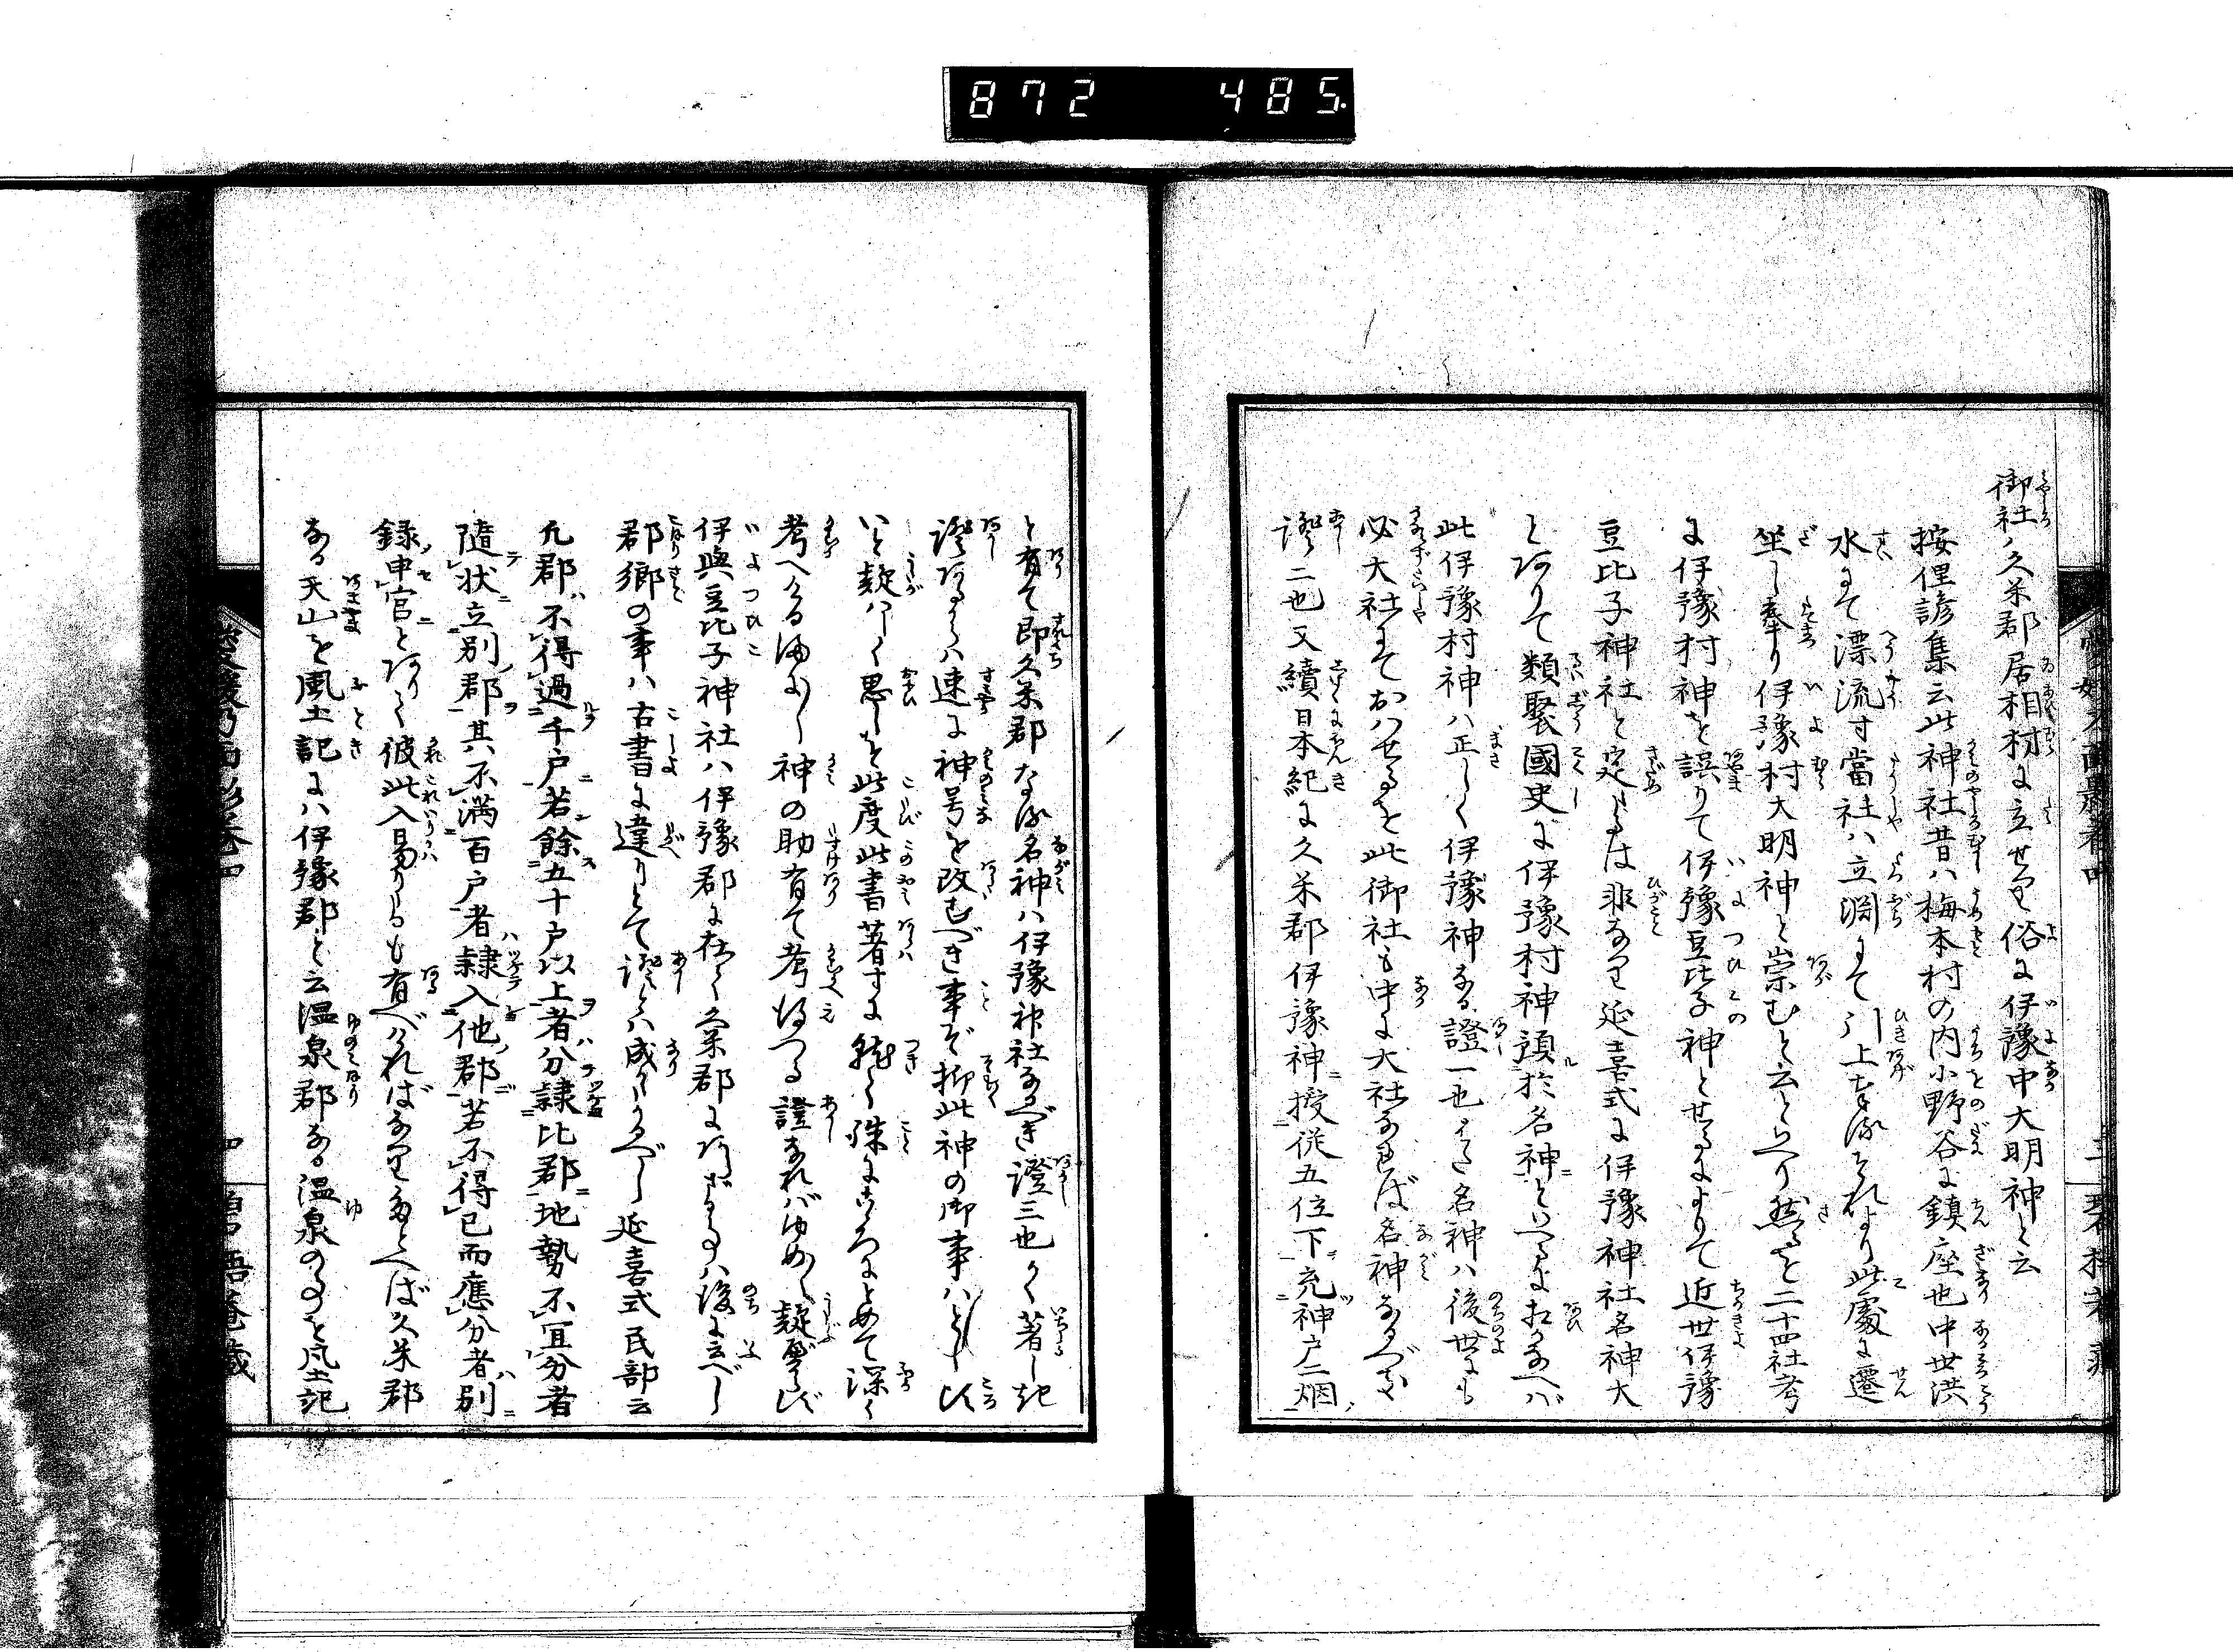 872 485
御社ハ久米郡居相村に立せり俗に伊豫中大明神と云
按俚諺集云此神社昔ハ梅本村の内小野谷に鎮座也中世洪
水にて漂流す當社ハ立淵にて引上奉るそれより此處に遷
坐し奉り伊豫村大明神と崇むと云へり然るを二十四社考
に伊豫村神を誤りて伊豫豆比子神とせるによりて近世伊豫
豆比子神社と定たるは非なり延喜式に伊豫神社名神大
とありて類聚國史に伊豫村神預於名神といへるに相あへバ
此伊豫村神ハ正しく伊豫神なる證一也また名神ハ後世にも
必大社にておハせるを此御社も中に大社なれば名神なるべき
證二也又續日本紀に久米郡伊豫神授従五位下充神戸二烟
と有て即久米郡なる名神ハ伊豫神社なるべき證三也かく著しき
證あるからハ速に神号を改むべき事ぞ抑此神の御事ハとし比
いと疑ハしく思しを此度此書著すに就て殊にこゝろにとめて深く
考へたるまゝに神の助有て考得つる證なれバゆめ〳〵疑ふべからず
伊與豆比子神社ハ伊豫郡に在て久米郡にあらざる事ハ後に云べし
郡郷の事ハ古書に違りとて證とハ成がたかるべし延喜式民部云
凡郡不得過千戸若餘五十戸以上者分隷比郡地勢不宜分者
隨状立別郡其不満百戸者隷入他郡若不得已而應分者別
録申官とありて彼此入易りたるも有べけれバなりたとへば久米郡
なる天山を風土記にハ伊豫郡と云温泉郡なる温泉の事を風土記